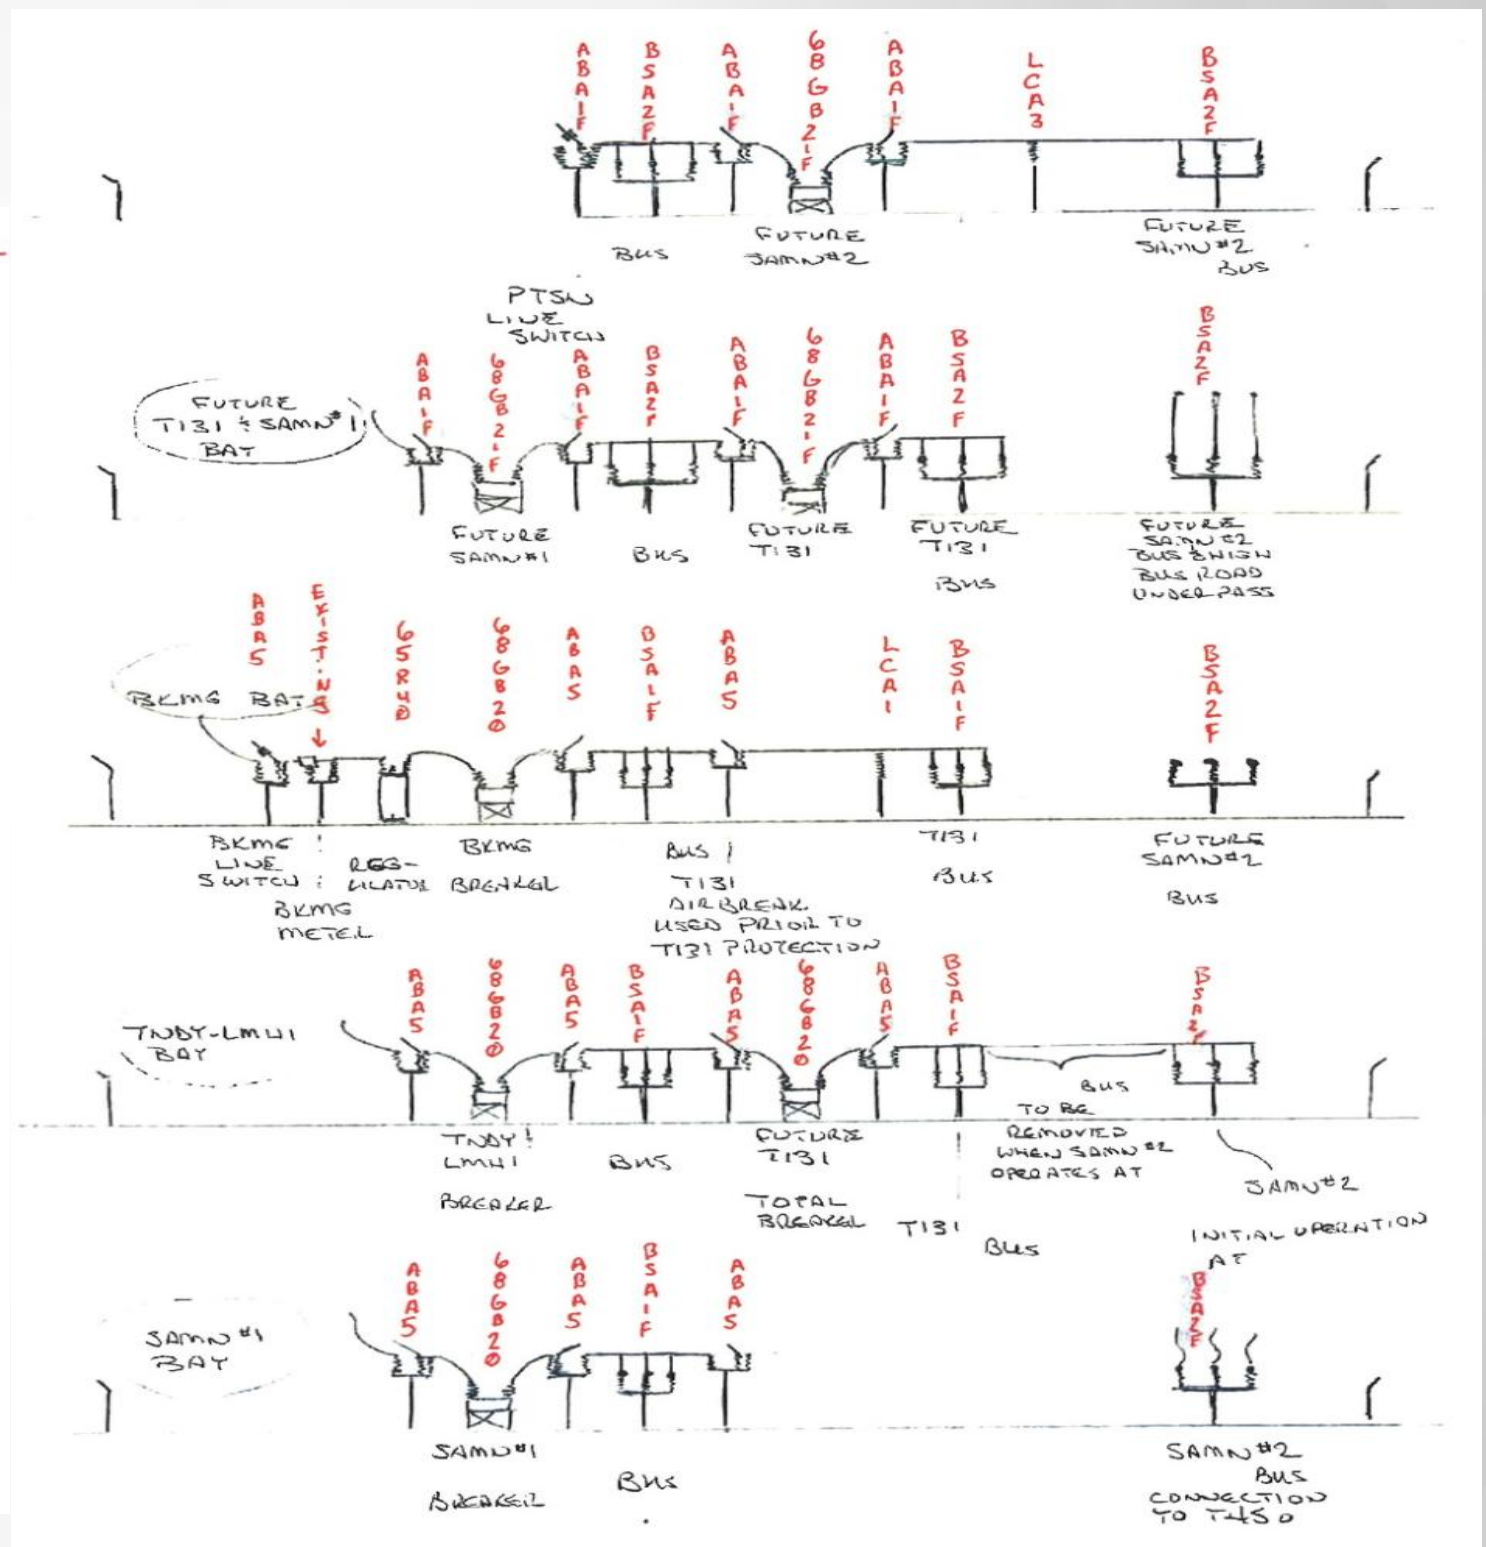 ABA1F BSA2F ABA1F 68GB21F ABA1F LCA3 BSA2F
BUS
FUTURE
SAMN#2
FUTURE
SAMN#2
BUS
PTSN
LINE
SWITCH
ABA1F 68GB21F ABA1F BSA2F ABA1F 68GB21F ABA1F BSA2F BSA2F
FUTURE
T131 & SAMN#1
BAY
FUTURE
SAMN#1
BUS
FUTURE
T131
FUTURE
T131
BUS
FUTURE
SAMN#2
BUS & HIGH
BUS ROAD
UNDERPASS
ABA5 EXISTING 65R40 68GB20 ABA5 BSA1F ABA5 LCA1 BSA1F BSA2F
BKMG BAY
BKMG
LINE
SWITCH
BKMG
METER
REG-
ULATOR
BKMG
BREAKER
BUS
T131
AIRBREAK
USED PRIOR TO
T131 PROTECTION
T131
BUS
FUTURE
SAMN#2
BUS
ABA5 68GB20 ABA5 BSA1F ABA5 68GB20 ABA5 BSA1F BSA2F
TNDY-LMH1
BAY
TNDY
LMH1
BREAKER
BUS
FUTURE
T131
TOTAL
BREAKER
T131
BUS
BUS
TO BE
REMOVED
WHEN SAMN#2
OPERATES AT
SAMN#2
INITIAL OPERATION
AT
ABA5 68GB20 ABA5 BSA1F ABA5 BSA2F
SAMN#1
BAY
SAMN#1
BREAKER
BUS
SAMN#2
BUS
CONNECTION
TO T450